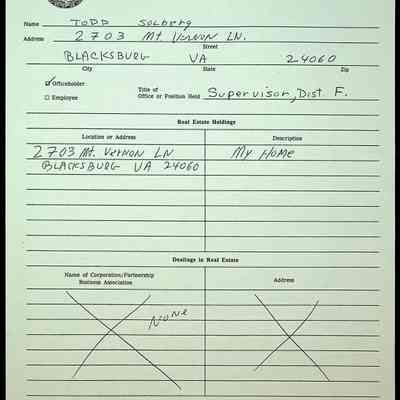 Name TODD Solberg
Address 2703 Mt. Vernon LN.
Street
BLACKSBURG VA 24060
City State Zip
☑ Officeholder
☐ Employee
Title of
Office or Position Held Supervisor, Dist. F.
Real Estate Holdings
Location or Address Description
2703 Mt. Vernon LN My Home
BLACKSBURG VA 24060
Dealings in Real Estate
Name of Corporation/Partnership
Business Association Address
None